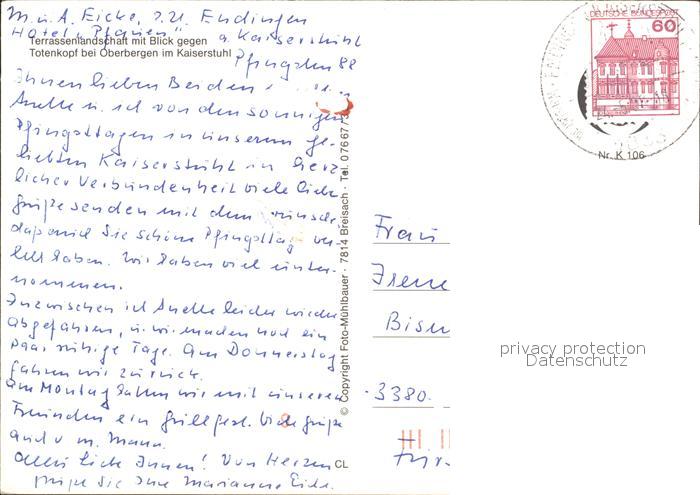 M. u. A. Eicke, z. Zt. Endingen
Hotel "Pfauen" a. Kaiserstuhl
Terrassenlandschaft mit Blick gegen
Totenkopf bei Oberbergen im Kaiserstuhl
Pfingsten 88
Ihnen lieben Beiden
Anette u. ich von den sonnigen
Pfingsttagen in unserem ge-
liebten Kaiserstuhl in herz-
licher Verbundenheit viele liebe
Grüße senden mit dem Wunsch
daß auch Sie schöne Pfingsttag ver-
lebt haben. Wir haben viel unter-
nommen.
Inzwischen ist Anette leider wieder
abgefahren, u. wir machen noch ein
paar ruhige Tage. Am Donnerstag
fahren wir zurück.
Am Montag hatten wir mit unseren
Freunden ein Grillfest. Viele Grüße
auch v. m. Mann.
Alles liebe Ihnen! Von Herzen
grüße Sie Ihre Marianne Eicke.
© Copyright Foto-Mühlbauer · 7814 Breisach · Tel. 07667/3
CL
DEUTSCHE BUNDESPOST
60
Nr. K 106
Frau
Irene
Bism
3380
privacy protection
Datenschutz